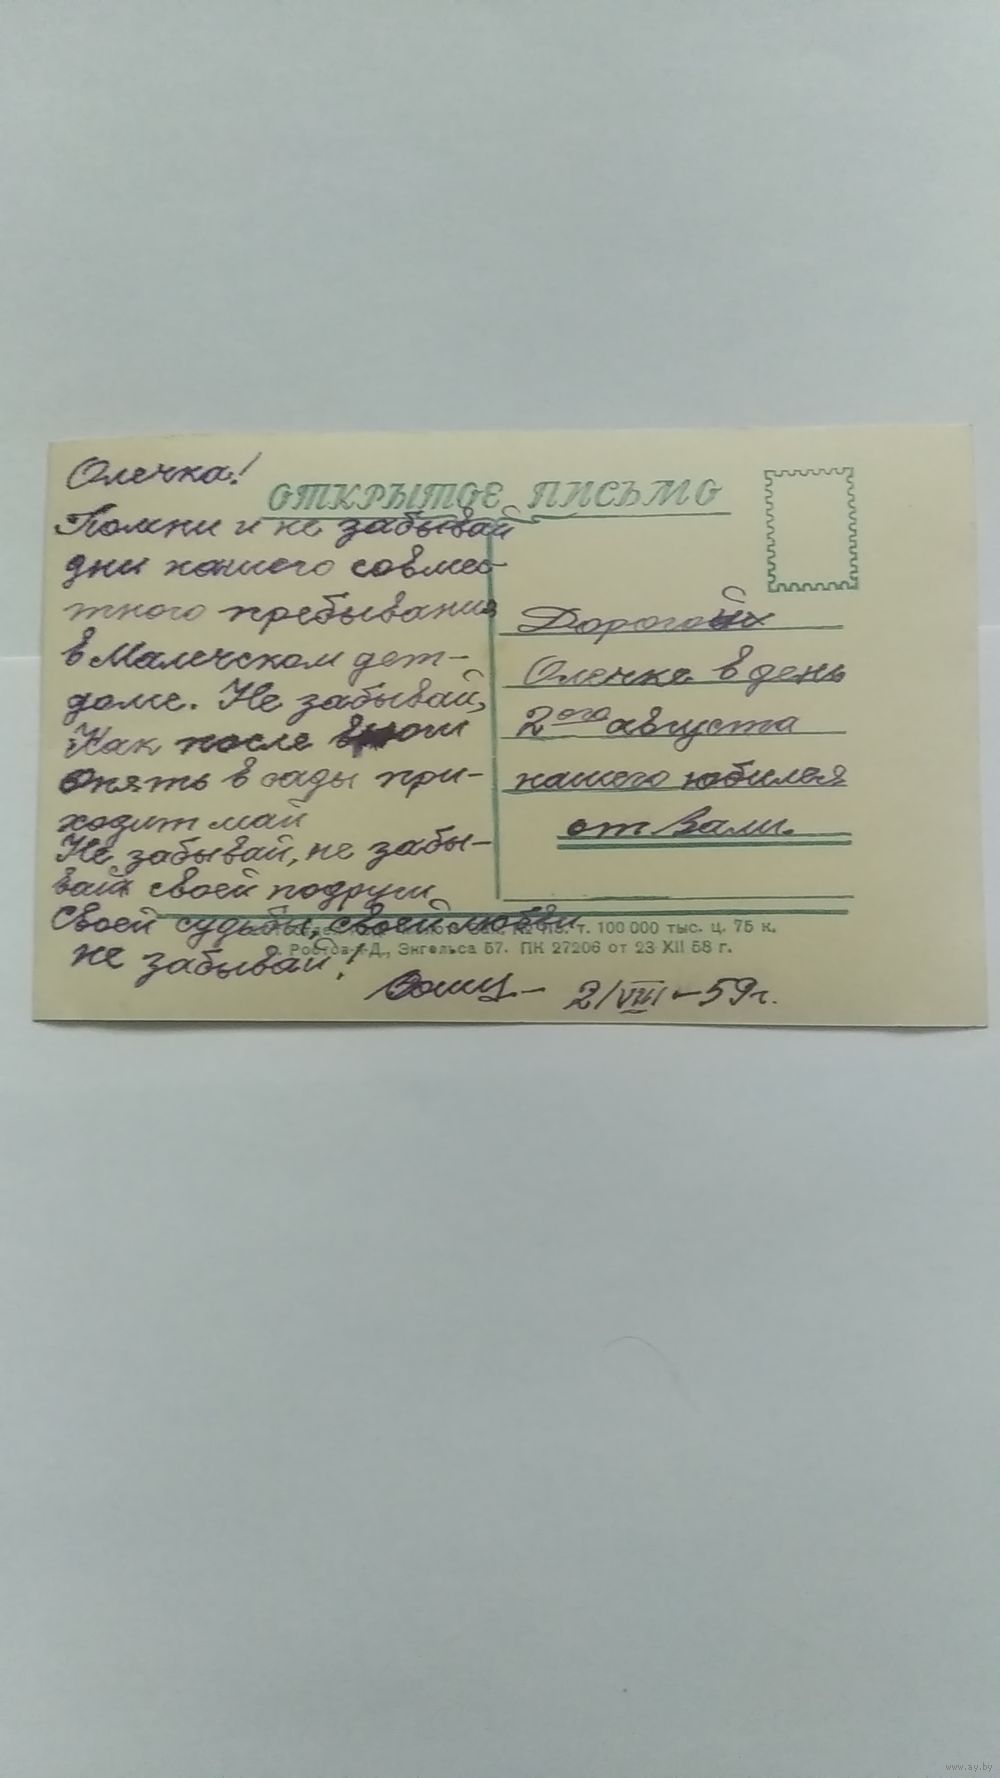 Олечка!
ОТКРЫТОЕ ПИСЬМО
Помни и не забывай
дни нашего совмес-
тного пребывания
в Малечском дет-
доме. Не забывай,
Как после
опять в сады при-
ходит май
Не забывай, не забы-
вай своей подруги
Своей судьбы, своей любви
не забывай!
2/VIII-59г.
Дорогой
Олечке в день
2ого августа
нашего юбилея
от Вали.
т. 100 000 тыс. ц. 75 к.
Ростов-Д., Энгельса 57. ПК 27206 от 23 XII 58 г.
www.ay.by